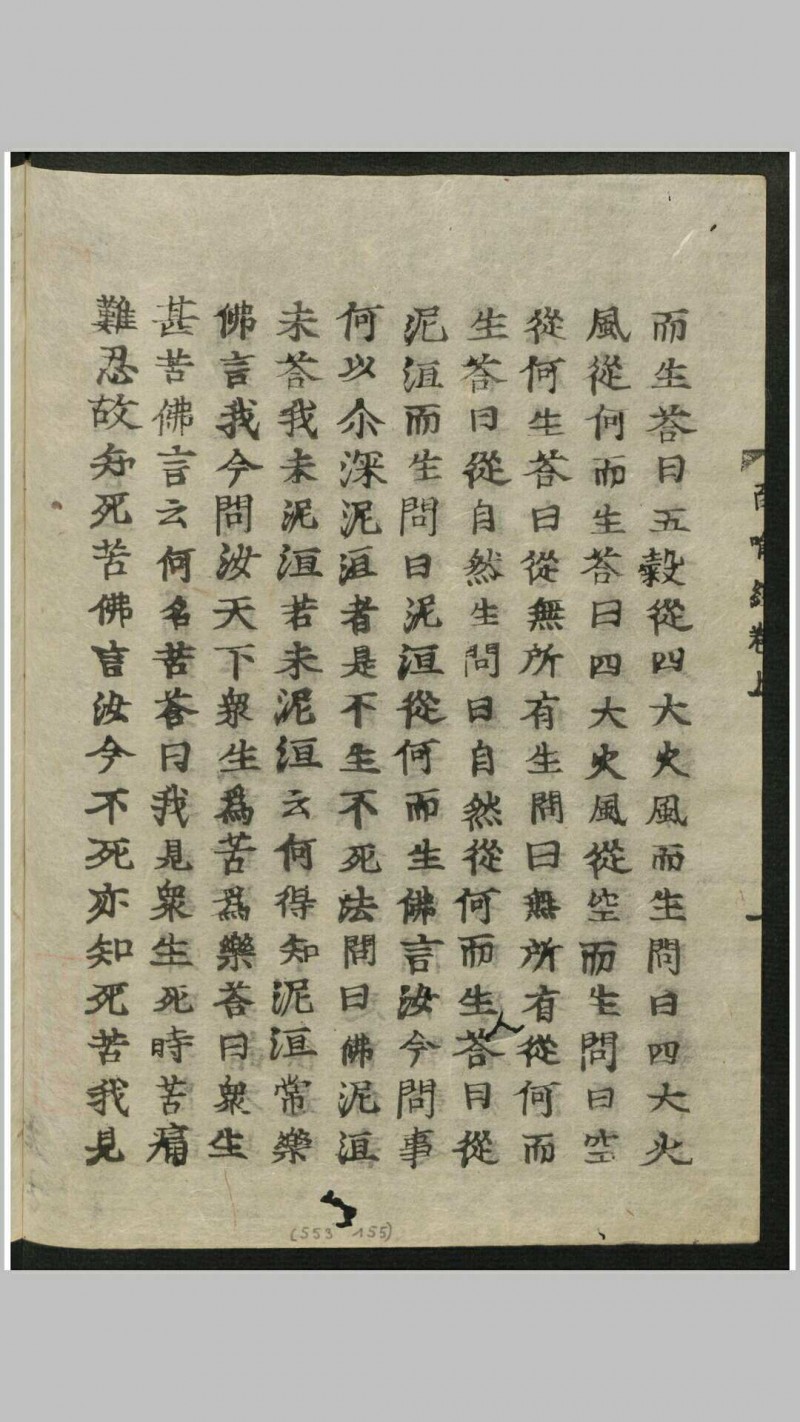 百喻經卷上
而生荅曰五穀從四大火風而生問曰四大火
風從何而生荅曰四大火風從空而生問曰空
從何生荅曰從無所有生問曰無所有從何而
生荅曰從自然生問曰自然從何而生荅曰從
泥洹而生問曰泥洹從何而生佛言汝今問事
何以尒深泥洹者是不生不死法問曰佛泥洹
未荅我未泥洹若未泥洹云何得知泥洹常樂
佛言我今問汝天下衆生爲苦爲樂荅曰衆生
甚苦佛言云何名苦荅曰我見衆生死時苦痛
難忍故知死苦佛言汝今不死亦知死苦我見
(553 155)